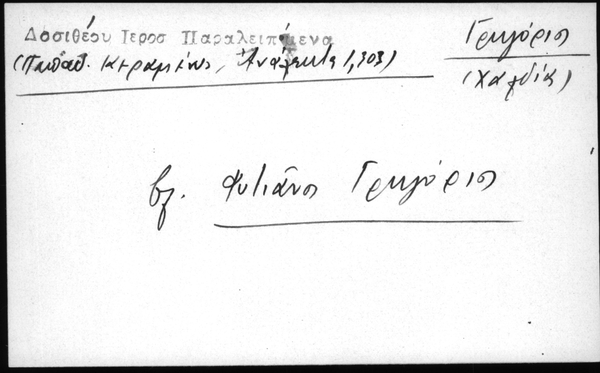 Δοσιθέου Ιεροσ Παραλειπόμενα
(Παπαδ. Κεραμέως, Ἀνάλεκτα 1,303)
Γρηγόριος
(Χαλδία)
βλ. Φυτιᾶνος Γρηγόριος